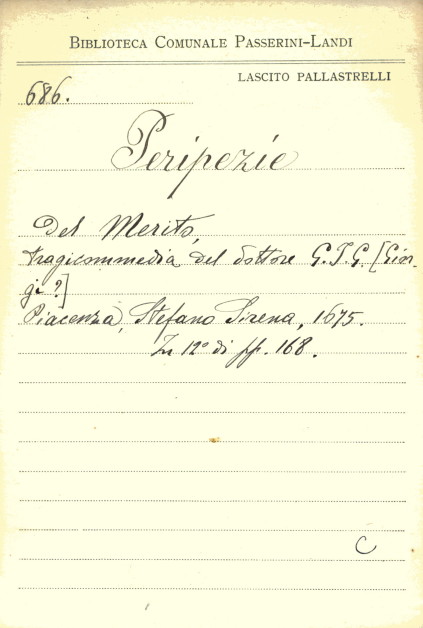 BIBLIOTECA COMUNALE PASSERINI-LANDI
LASCITO PALLASTRELLI
686.
Peripezie
Del Merito,
tragicommedia del dottore G.T.G. [Gior-
gi?]
Piacenza, Stefano Sirena, 1675.
In 12° di pp. 168.
C